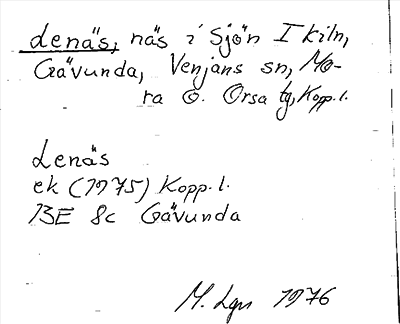 Lenäs, näs i sjön I kiln,
Gävunda, Venjans sn, Mo-
ra o. Orsa tg, Kopp. l.
Lenäs
ek (1975) Kopp. l.
13E 8c Gävunda
M. Lgn 1976